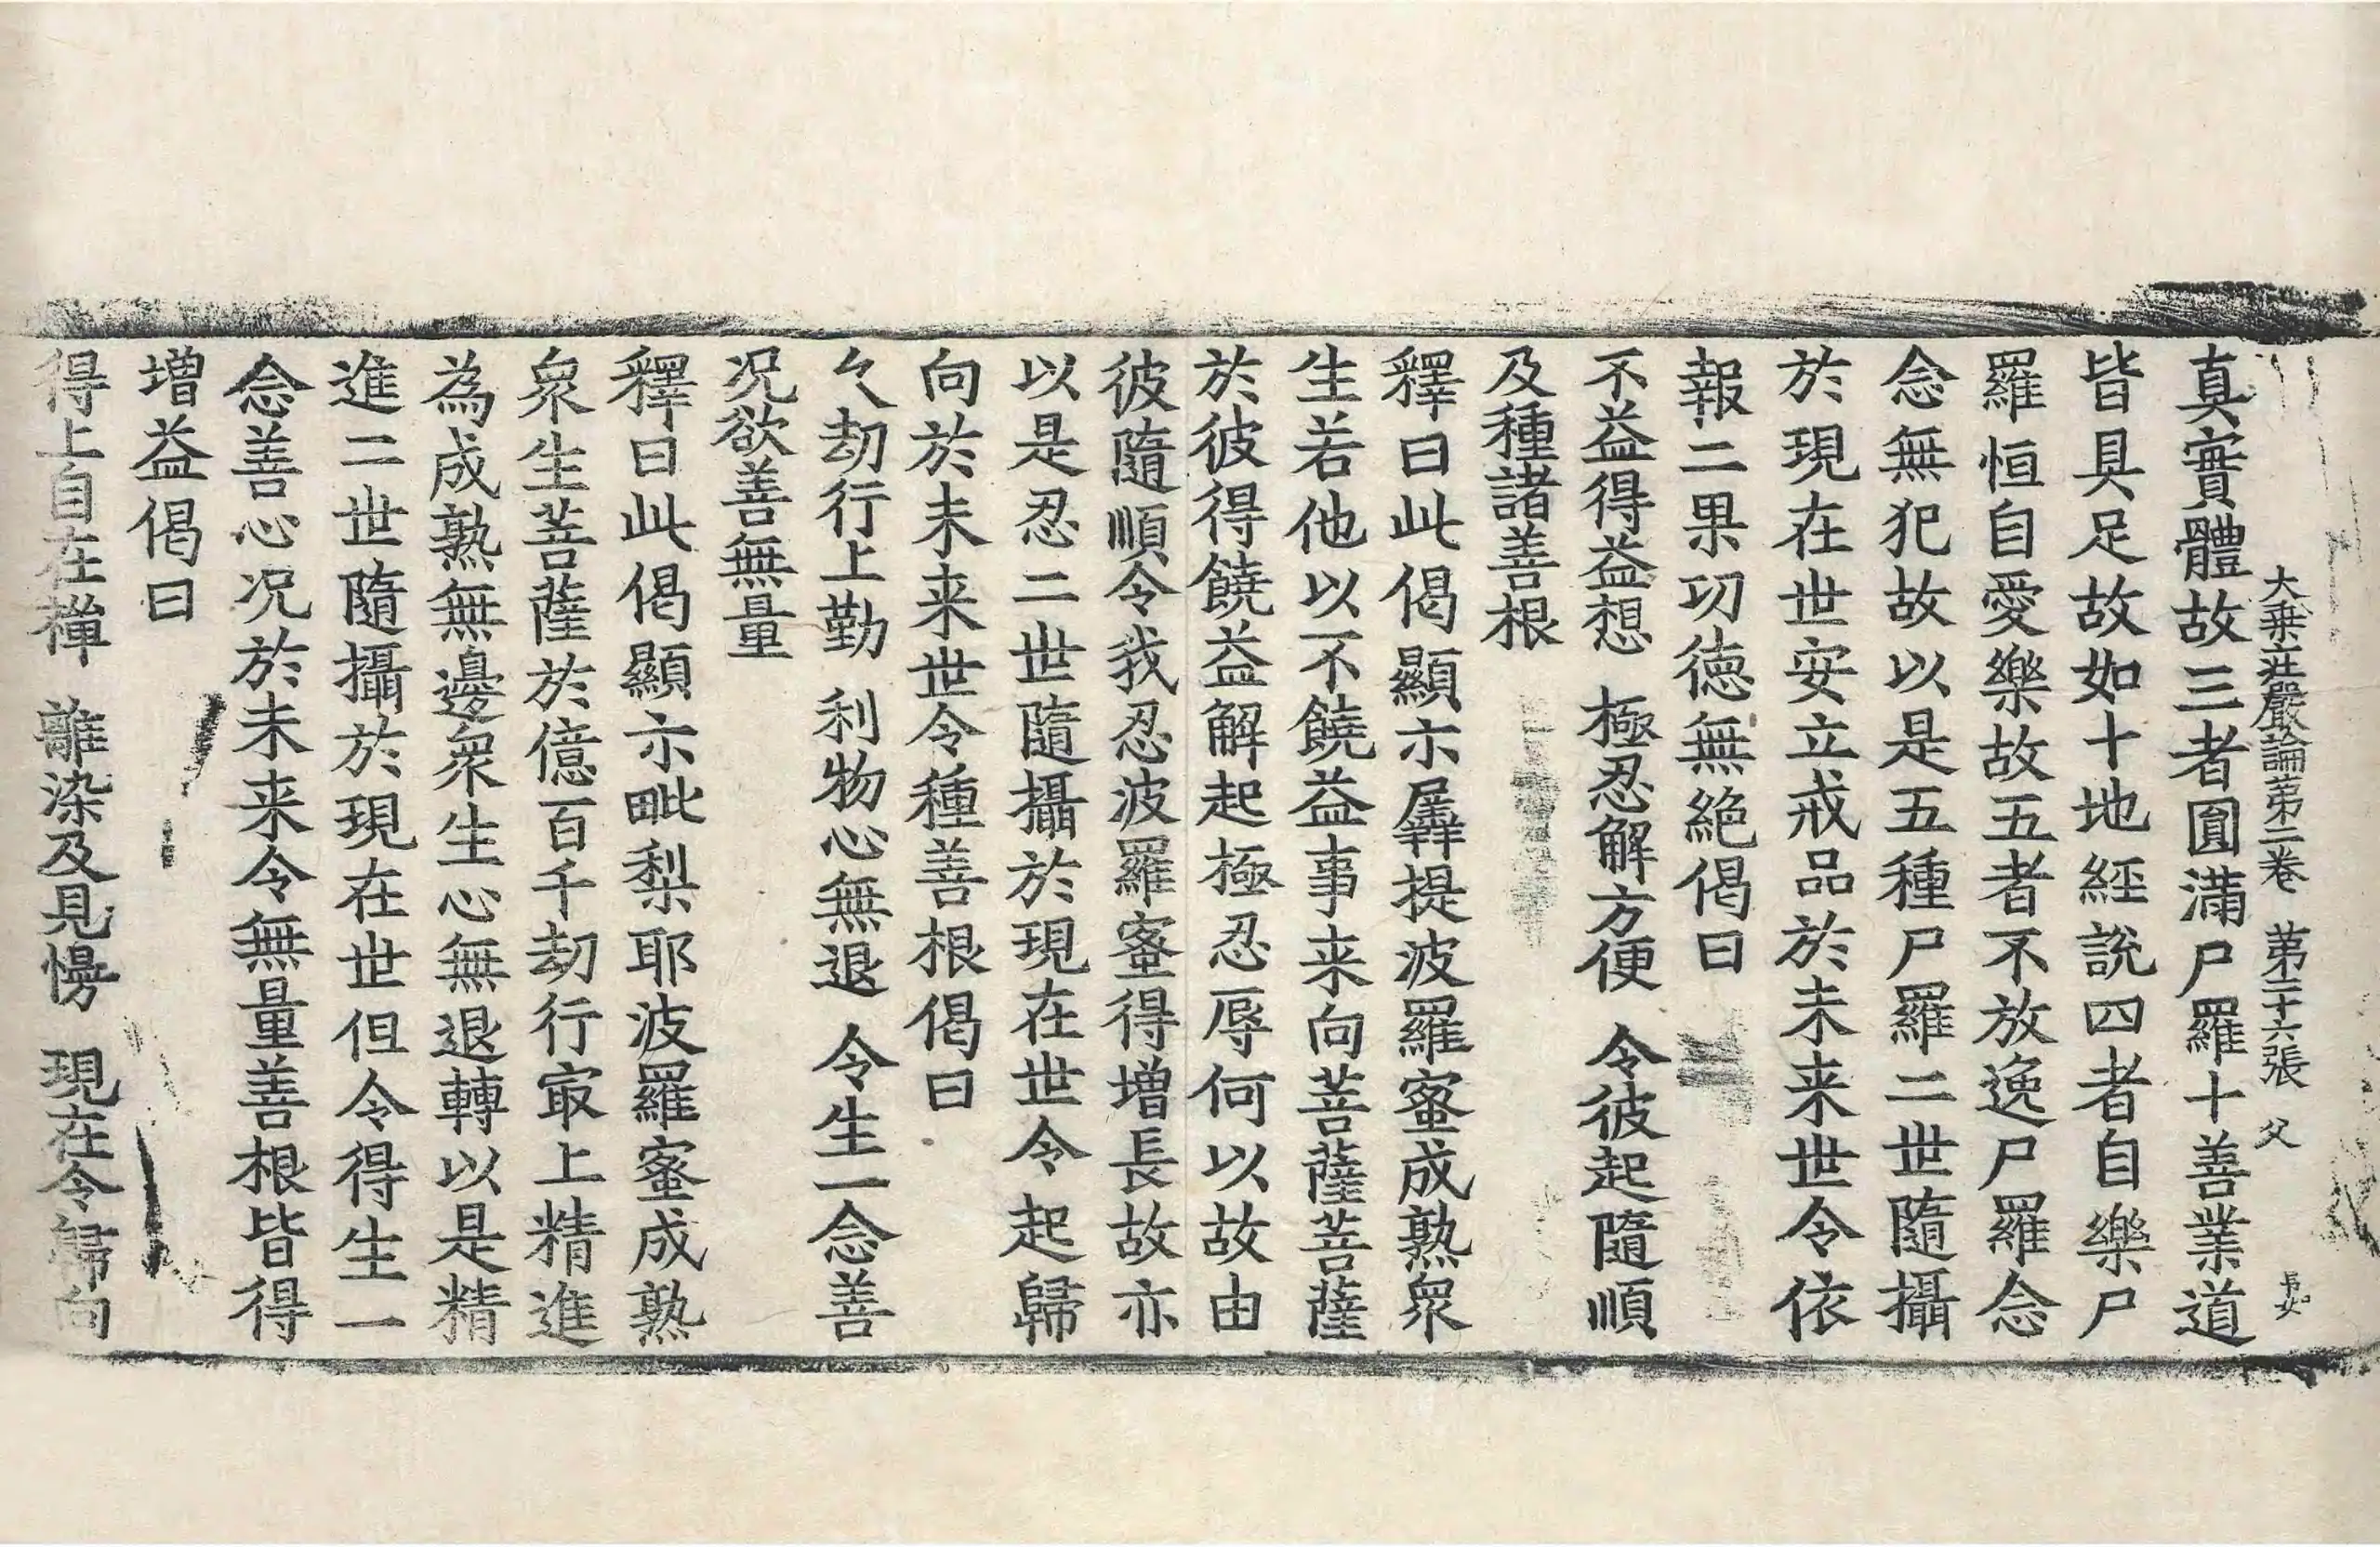 大乗庄嚴論苐二卷 苐二十六張 父
真實體故三者圓滿尸羅十善業道
皆具足故如十地經說四者自樂尸
羅恒自愛樂故五者不放逸尸羅念
念無犯故以是五種尸羅二世隨攝
於現在世安立戒品於未来世令依
報二果㓛德無絶偈曰
不益得益想 極忍解方便 令彼起隨順
及種諸善根
釋曰此偈顯示羼提波羅蜜成熟衆
生若他以不饒益事来向菩薩菩薩
於彼得饒益解起極忍辱何以故由
彼隨順令我忍波羅蜜得增長故亦
以是忍二世隨攝於現在世令起歸
向於未来世令種善根偈曰
久劫行上勤 利物心無退 令生一念善
况欲善無量
釋曰此偈顯示毗梨耶波羅蜜成熟
衆生菩薩於億百千劫行㝡上精進
為成熟無邊衆生心無退轉以是精
進二世隨攝於現在世但令得生一
念善心况於未来令無量善根皆得
增益偈曰
得上自在禪 離染及見慢 現在令歸向